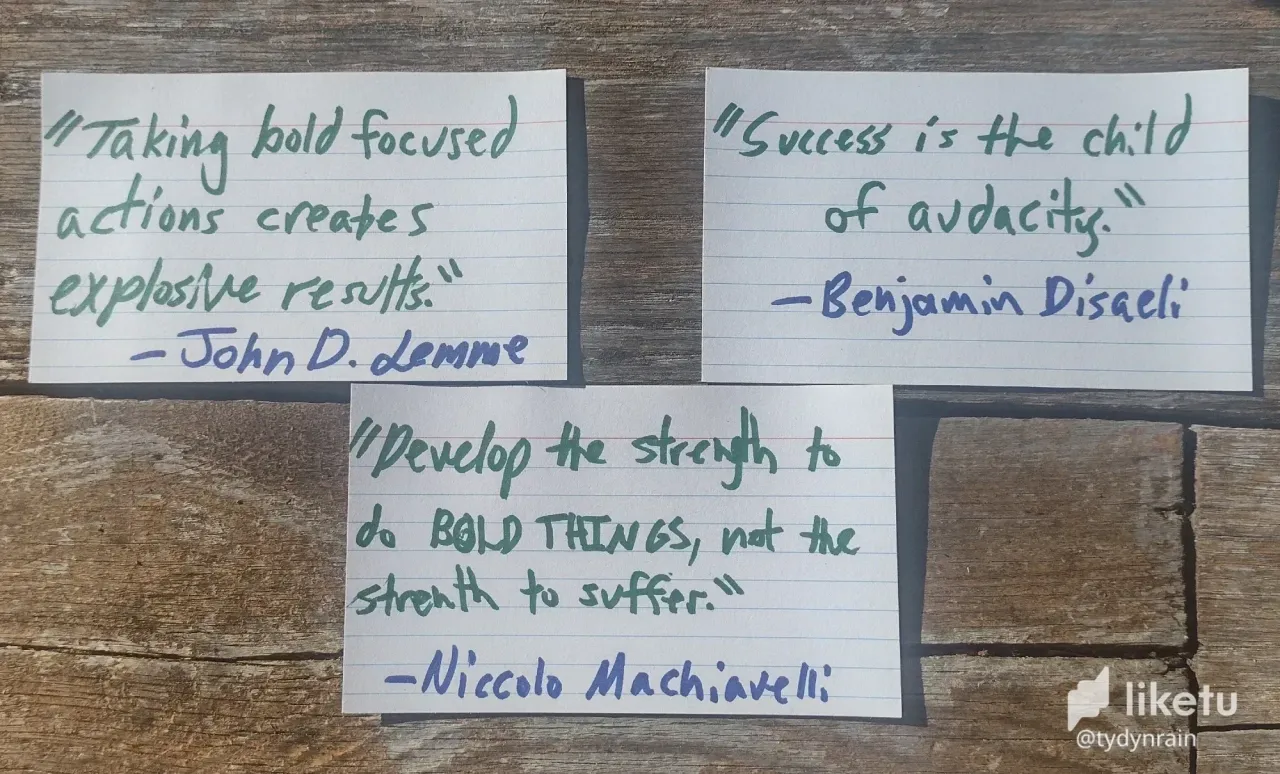 "Taking bold focused
actions creates
explosive results."
- John D. Lemme
"Success is the child
of audacity."
- Benjamin Disaeli
"Develop the strength to
do BOLD THINGS, not the
strenth to suffer."
- Niccolo Machiavelli
liketu
@tydynrain